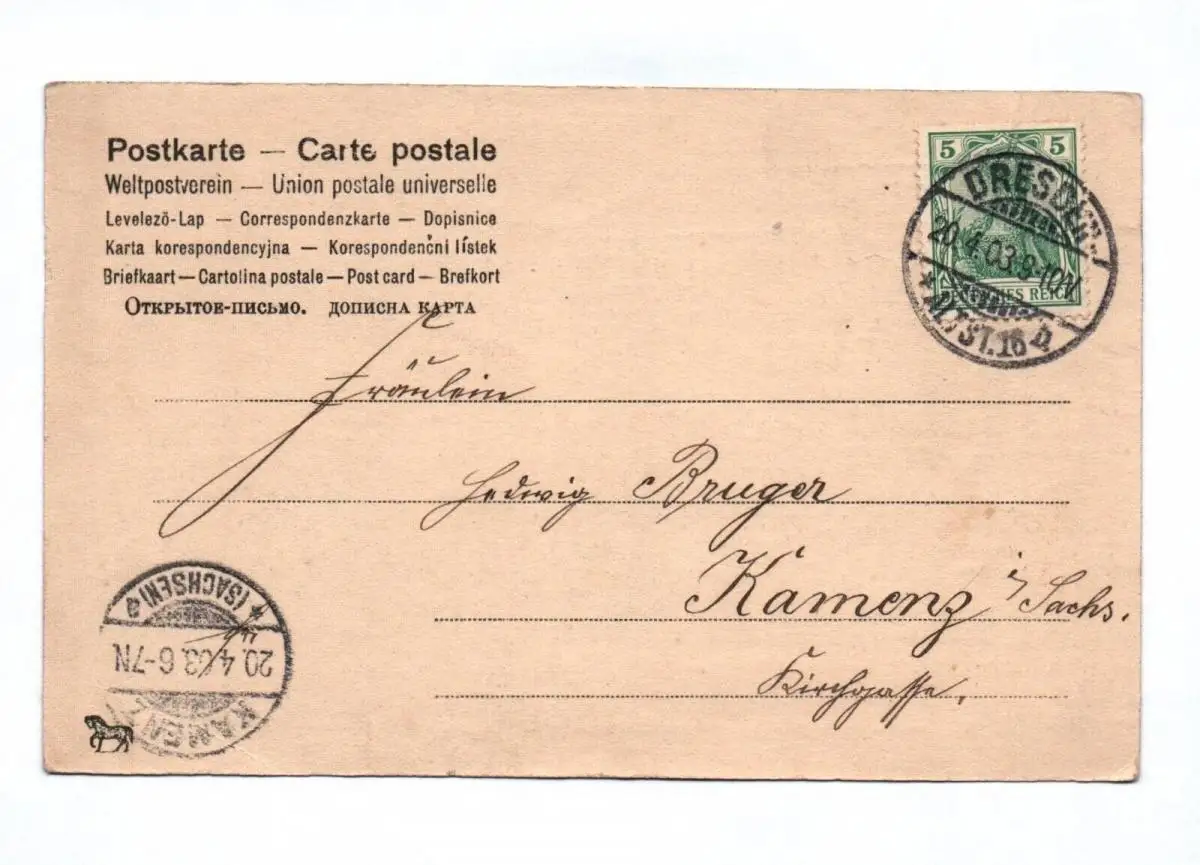 Postkarte — Carte postale
Weltpostverein — Union postale universelle
Levelező-Lap — Correspondenzkarte — Dopisnice
Karta korespondencyjna — Korespondenční lístek
Briefkaart — Cartolina postale — Post card — Brefkort
Открытое-письмо. дописна карта
5 5
DEUTSCHES REICH
DRESDEN
20.4.03.9-10V
* ALTST.16 d
Fräulein
Hedwig Bruger
Kamenz i/Sachs.
Kirchgasse.
KAMENZ
20.4.03.6-7N
* (SACHSEN) a